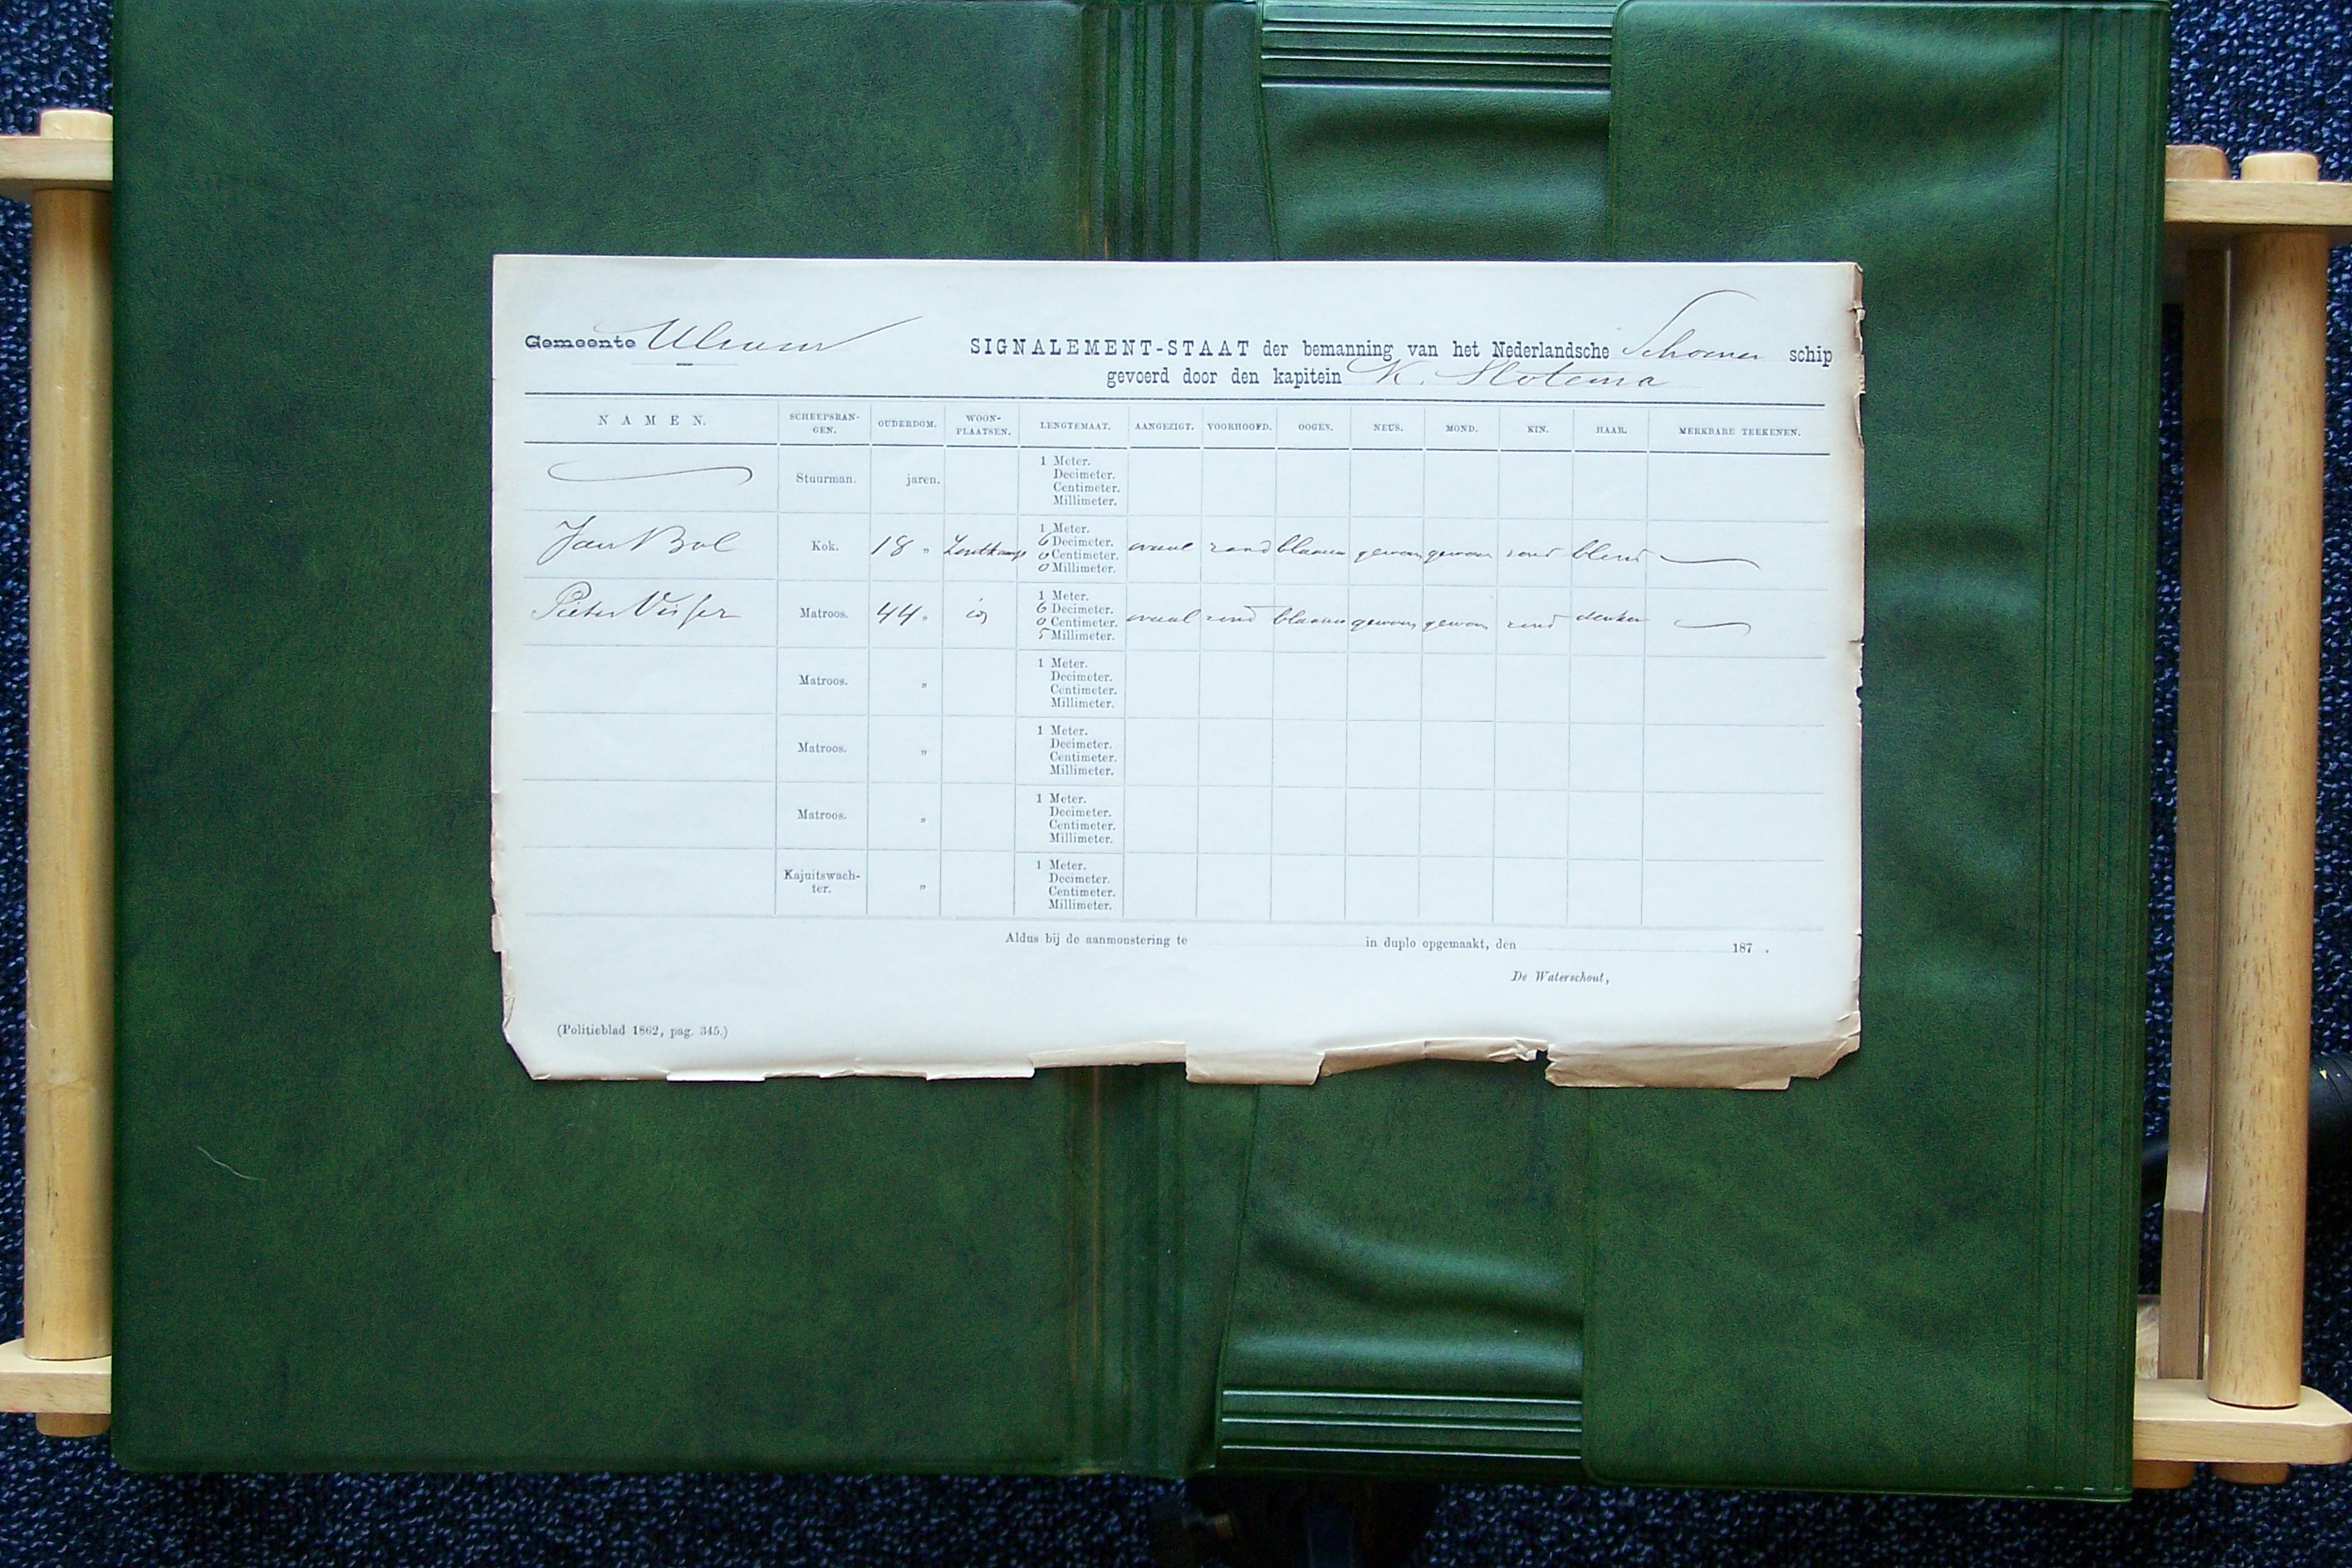 Gemeente Ulrum
SIGNALEMENT-STAAT der bemanning van het Nederlandsche Schoener schip
gevoerd door den kapitein K. Slotema
NAMEN. SCHEEPSRAN-GEN. OUDERDOM. WOON-PLAATSEN. LENGTEMAAT. AANGEZIGT. VOORHOOFD. OOGES. NEUS. MOND. KIN. HAAR. MERKBARE TEEKENEN.
Stuurman. jaren. 1 Meter.
Decimeter.
Centimeter.
Millimeter.
Jan Bol Kok. 18 " Zoutkamp 1 Meter. ovaal rond blaauw gewoon gewoon rond blond
6 Decimeter.
0 Centimeter.
0 Millimeter.
Pieter Visser Matroos. 44 " id 1 Meter. ovaal rond blaauw gewoon gewoon rond donker
6 Decimeter.
0 Centimeter.
5 Millimeter.
Matroos. " 1 Meter.
Decimeter.
Centimeter.
Millimeter.
Matroos. " 1 Meter.
Decimeter.
Centimeter.
Millimeter.
Matroos. " 1 Meter.
Decimeter.
Centimeter.
Millimeter.
Kajuitswach-ter. " 1 Meter.
Decimeter.
Centimeter.
Millimeter.
Aldus bij de aanmonstering te in duplo opgemaakt, den 187 .
De Waterschout,
(Politieblad 1862, pag. 345.)